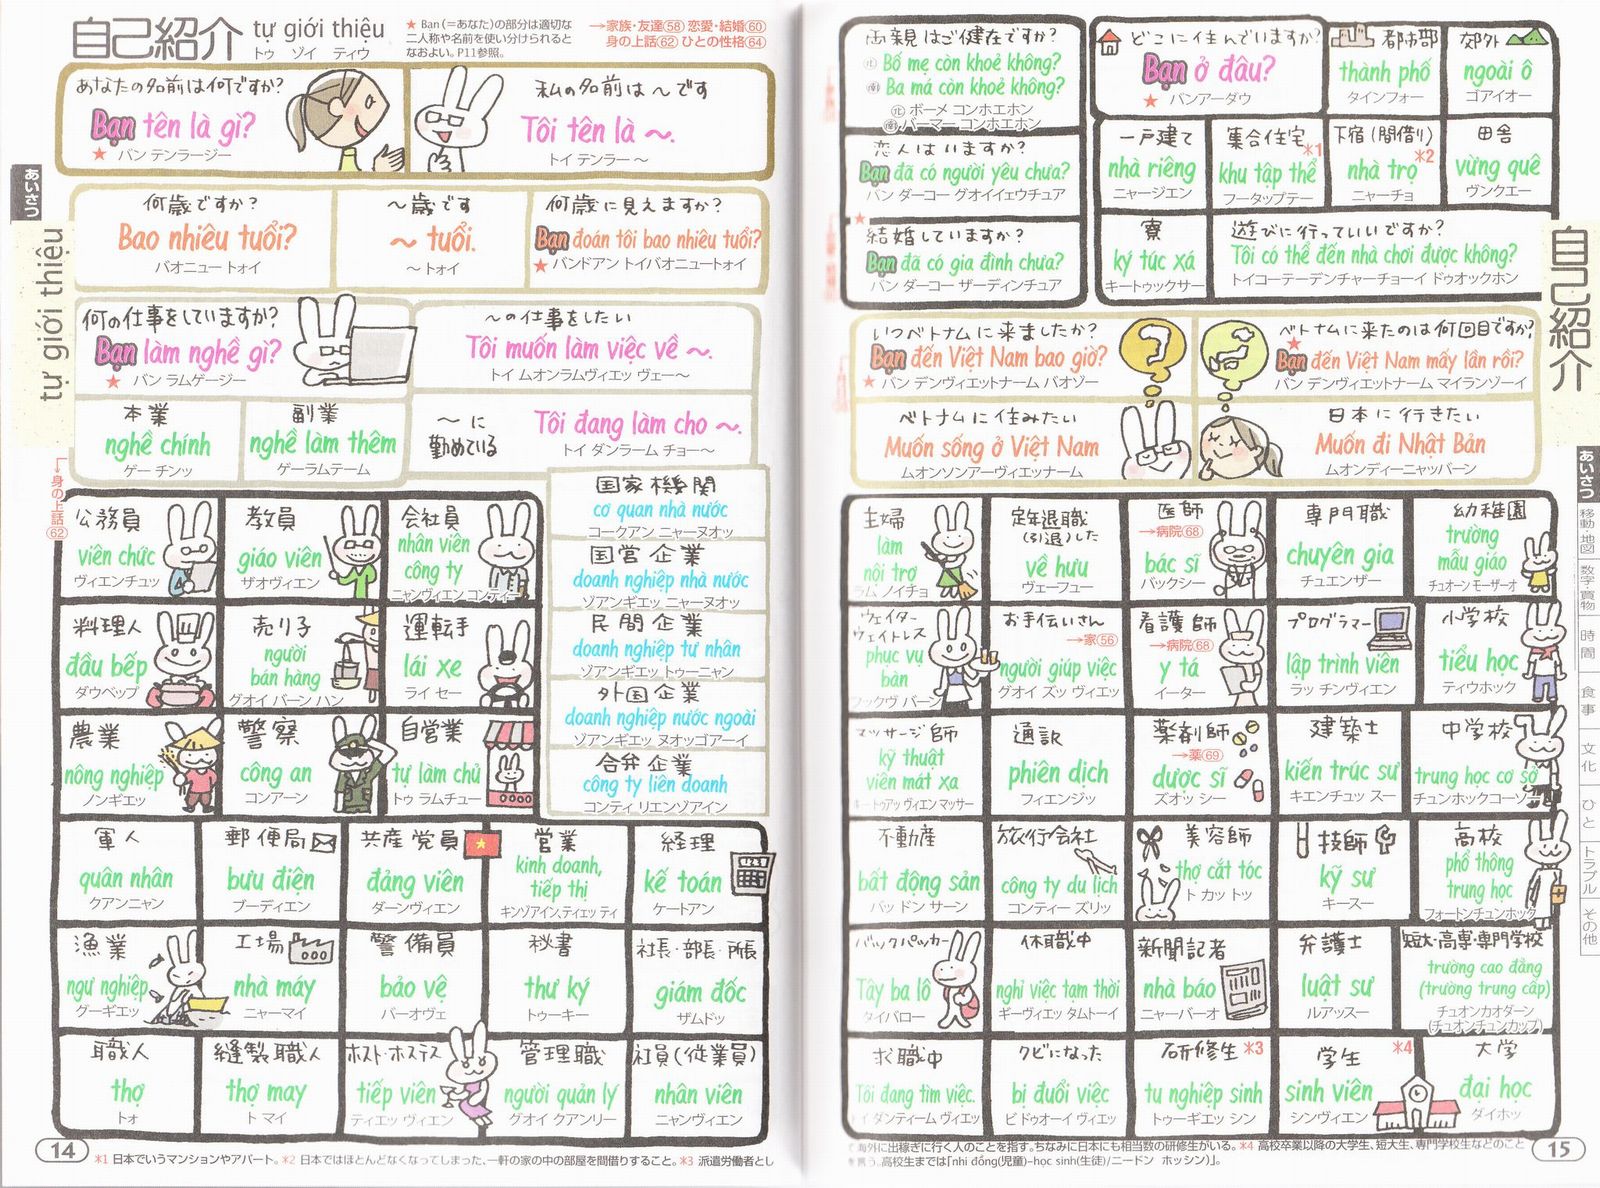 自己紹介
tự giới thiệu
トゥ ゾイ ティウ
★ Ban（＝あなた）の部分は適切な
二人称や名前を使い分けられると
なおよい。P11参照。
→家族・友達(58) 恋愛・結婚(60)
身の上話(62) ひとの性格(64)
あいさつ
tự giới thiệu
あなたの名前は何ですか?
Bạn tên là gì?
★ バン テンラージー
私の名前は〜です
Tôi tên là 〜.
トイ テンラー 〜
何歳ですか?
Bao nhiêu tuổi?
バオニュー トォイ
〜歳です
〜 tuổi.
〜 トォイ
何歳に見えますか?
Bạn đoán tôi bao nhiêu tuổi?
★ バンドアン トイバオニュートォイ
何の仕事をしていますか?
Bạn làm nghề gì?
★ バン ラムゲージー
〜の仕事をしたい
Tôi muốn làm việc về 〜.
トイ ムオンラムヴィエッ ヴェー〜
本業
nghề chính
ゲー チンッ
副業
nghề làm thêm
ゲーラムテーム
〜に
勤めている
Tôi đang làm cho 〜.
トイ ダンラーム チョー〜
→身の上話(62)
公務員
viên chức
ヴィエンチュッ
教員
giáo viên
ザオヴィエン
会社員
nhân viên
công ty
ニャンヴィエン コンティー
国家機関
cơ quan nhà nước
コークアン ニャーヌオッ
国営企業
doanh nghiệp nhà nước
ゾアンギエッ ニャーヌオッ
民間企業
doanh nghiệp tư nhân
ゾアンギエッ トゥーニャン
外国企業
doanh nghiệp nước ngoài
ゾアンギエッ ヌオッゴアーイ
合弁企業
công ty liên doanh
コンティ リエンゾアイン
料理人
đầu bếp
ダウベップ
売り子
người
bán hàng
グオイ バーン ハン
運転手
lái xe
ライ セー
農業
nông nghiệp
ノンギエッ
警察
công an
コンアーン
自営業
tự làm chủ
トゥ ラムチュー
軍人
quân nhân
クアンニャン
郵便局
bưu điện
ブーディエン
共産党員
đảng viên
ダーンヴィエン
営業
kinh doanh,
tiếp thị
キンゾアイン,ティエッ ティ
経理
kế toán
ケートアン
漁業
ngư nghiệp
グーギエッ
工場
nhà máy
ニャーマイ
警備員
bảo vệ
バーオヴェ
秘書
thư ký
トゥーキー
社長・部長・所長
giám đốc
ザムドッ
職人
thợ
トォ
縫製職人
thợ may
ト マイ
ホスト・ホステス
tiếp viên
ティエッ ヴィエン
管理職
người quản lý
グオイ クアンリー
社員(従業員)
nhân viên
ニャンヴィエン
14
*1 日本でいうマンションやアパート。*2 日本ではほとんどなくなってしまった、一軒の家の中の部屋を間借りすること。*3 派遣労働者とし
両親はご健在ですか?
(北) Bố mẹ còn khoẻ không?
(南) Ba má còn khoẻ không?
(北) ボーメ コンホエホン
(南) バーマー コンホエホン
恋人はいますか?
Bạn đã có người yêu chưa?
バン ダーコー グオイイェウチュア
★
結婚していますか?
Bạn đã có gia đình chưa?
バン ダーコー ザーディンチュア
どこに住んでいますか?
Bạn ở đâu?
★ バンアーダウ
都市部
thành phố
タインフォー
郊外
ngoài ô
ゴアイオー
一戸建て
nhà riêng
ニャージエン
集合住宅
*1
khu tập thể
フータップテー
下宿(間借り)
*2
nhà trọ
ニャーチョ
田舎
vừng quê
ヴンクエー
寮
ký túc xá
キートゥックサー
遊びに行っていいですか?
Tôi có thể đến nhà chơi được không?
トイコーテーデンチャーチョーイ ドゥオックホン
いつベトナムに来ましたか?
Bạn đến Việt Nam bao giờ?
★ バン デンヴィエットナーム バオゾー
ベトナムに来たのは何回目ですか?
★
Bạn đến Việt Nam mấy lần rồi?
バン デンヴィエットナーム マイランゾーイ
ベトナムに住みたい
Muốn sống ở Việt Nam
ムオンソンアーヴィエッナーム
日本に行きたい
Muốn đi Nhật Bản
ムオンディーニャッバーン
主婦
làm
nội trợ
ラム ノイチョ
定年退職
(引退)した
về hưu
ヴェーフュー
医師
→病院(68)
bác sĩ
バックシー
専門職
chuyên gia
チュエンザー
幼稚園
trường
mẫu giáo
チュオーン モーザーオ
ウェイター
ウェイトレス
phục vụ
bàn
フックヴ バーン
お手伝いさん
→家(56)
người giúp việc
グオイ ズッ ヴィエッ
看護師
→病院(68)
y tá
イーター
プログラマー
lập trình viên
ラッ チンヴィエン
小学校
tiểu học
ティウホック
マッサージ師
kỹ thuật
viên mát xa
キートゥアッ ヴィエン マッサー
通訳
phiên dịch
フィエンジッ
薬剤師
→薬(69)
dược sĩ
ズオッ シー
建築士
kiến trúc sư
キエンチュッ スー
中学校
trung học cơ sở
チュンホックコーソー
不動産
bất động sản
バッ ドン サーン
旅行会社
công ty du lịch
コンティー ズリッ
美容師
thợ cắt tóc
ト カッ トッ
技師
kỹ sư
キースー
高校
phổ thông
trung học
フォートンチュンホック
バックパッカー
Tây ba lô
タイバロー
休職中
nghỉ việc tạm thời
ギーヴィエッ タムトーイ
新聞記者
nhà báo
ニャーバーオ
弁護士
luật sư
ルアッスー
短大・高専・専門学校
trường cao đẳng
(trường trung cấp)
チュオンカオダーン
(チュオンチュンカップ)
求職中
Tôi đang tìm việc.
イ ダンティーム ヴィエッ
クビになった
bị đuổi việc
ビ ドゥオーイ ヴィエッ
研修生 *3
tu nghiệp sinh
トゥーギエッ シン
学生 *4
sinh viên
シンヴィエン
大学
đại học
ダイホッ
自己紹介
あいさつ
移動・地図
数字・買物
時間
食事
文化
ひと
トラブル
その他
て海外に出稼ぎに行く人のことを指す。ちなみに日本にも相当数の研修生がいる。*4 高校卒業以降の大学生、短大生、専門学校生などのこと
を言う。高校生までは「nhi đồng(児童)-học sinh(生徒)/ニードン ホッシン)」。
15